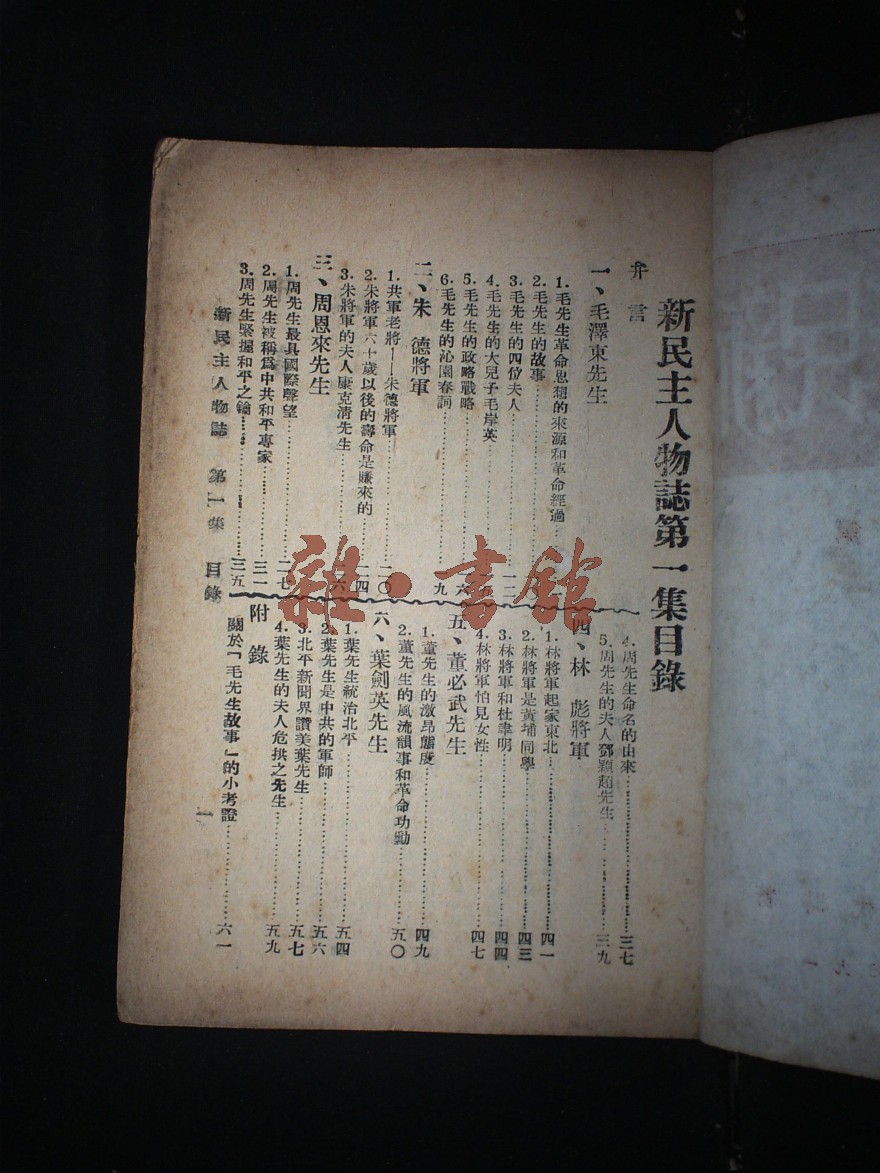 新民主人物誌第一集目錄
弁言
一、毛澤東先生
1.毛先生革命思想的來源和革命經過
2.毛先生的故事
3.毛先生的四位夫人
4.毛先生的大兒子毛岸英
5.毛先生的政略戰略
6.毛先生的沁園春詞……九
二、朱 德將軍
1.共軍老將——朱德將軍……二〇
2.朱將軍六十歲以後的壽命是賺來的……二四
3.朱將軍的夫人康克清先生……二六
三、周恩來先生
1.周先生最具國際聲望……二七
2.周先生被稱爲中共和平專家……三一
3.周先生緊握和平之鑰……三五
4.周先生命名的由來……三七
5.周先生的夫人鄧穎超先生……三九
四、林 彪將軍
1.林將軍起家東北……四一
2.林將軍是黃埔同學……四三
3.林將軍和杜聿明……四四
4.林將軍怕見女性……四七
五、董必武先生
1.董先生的激昂態度……四九
2.董先生的風流韻事和革命功勳……五〇
六、葉劍英先生
1.葉先生統治北平……五四
2.葉先生是中共的軍師……五六
3.北平新聞界讚美葉先生……五七
4.葉先生的夫人危拱之先生……五九
附錄
關於「毛先生故事」的小考證……六一
新民主人物誌 第一集 目錄
一
雜·書館